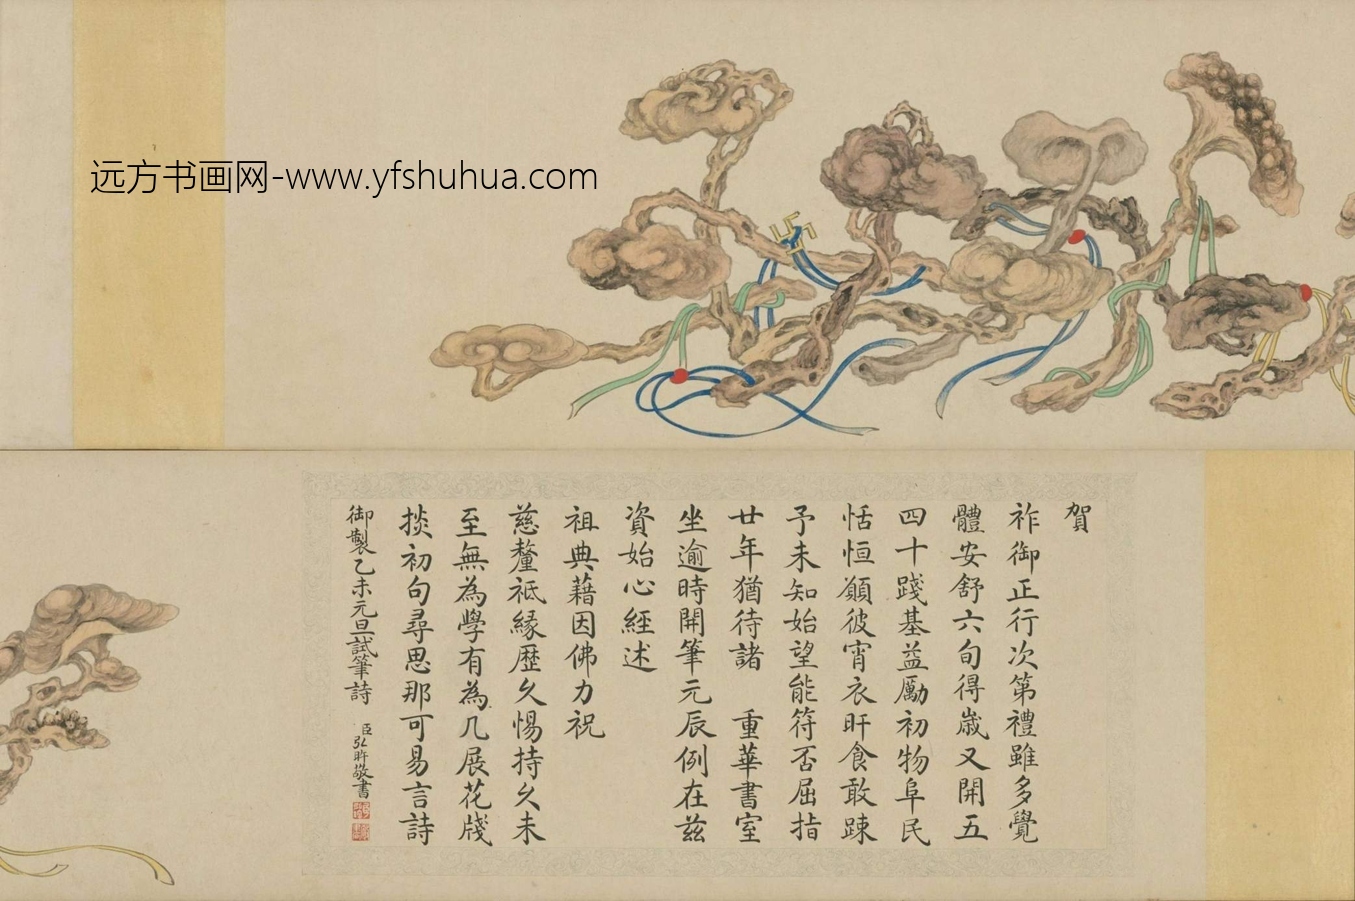 远方书画网-www.yfshuhua.com
賀
祚御正行次第禮雖多覺
體安舒六旬得嵗又開五
四十踐基益勵初物阜民
恬恒願彼宵衣旰食敢踈
予未知始望能符否屈指
廿年猶待諸 重華書室
坐逾時開筆元辰例在兹
資始心經述
祖典藉因佛力祝
慈釐祗緣歴久惕持久未
至無為學有為几展花牋
掞初句尋思那可易言詩
御製乙未元旦試筆詩 臣弘旿敬書